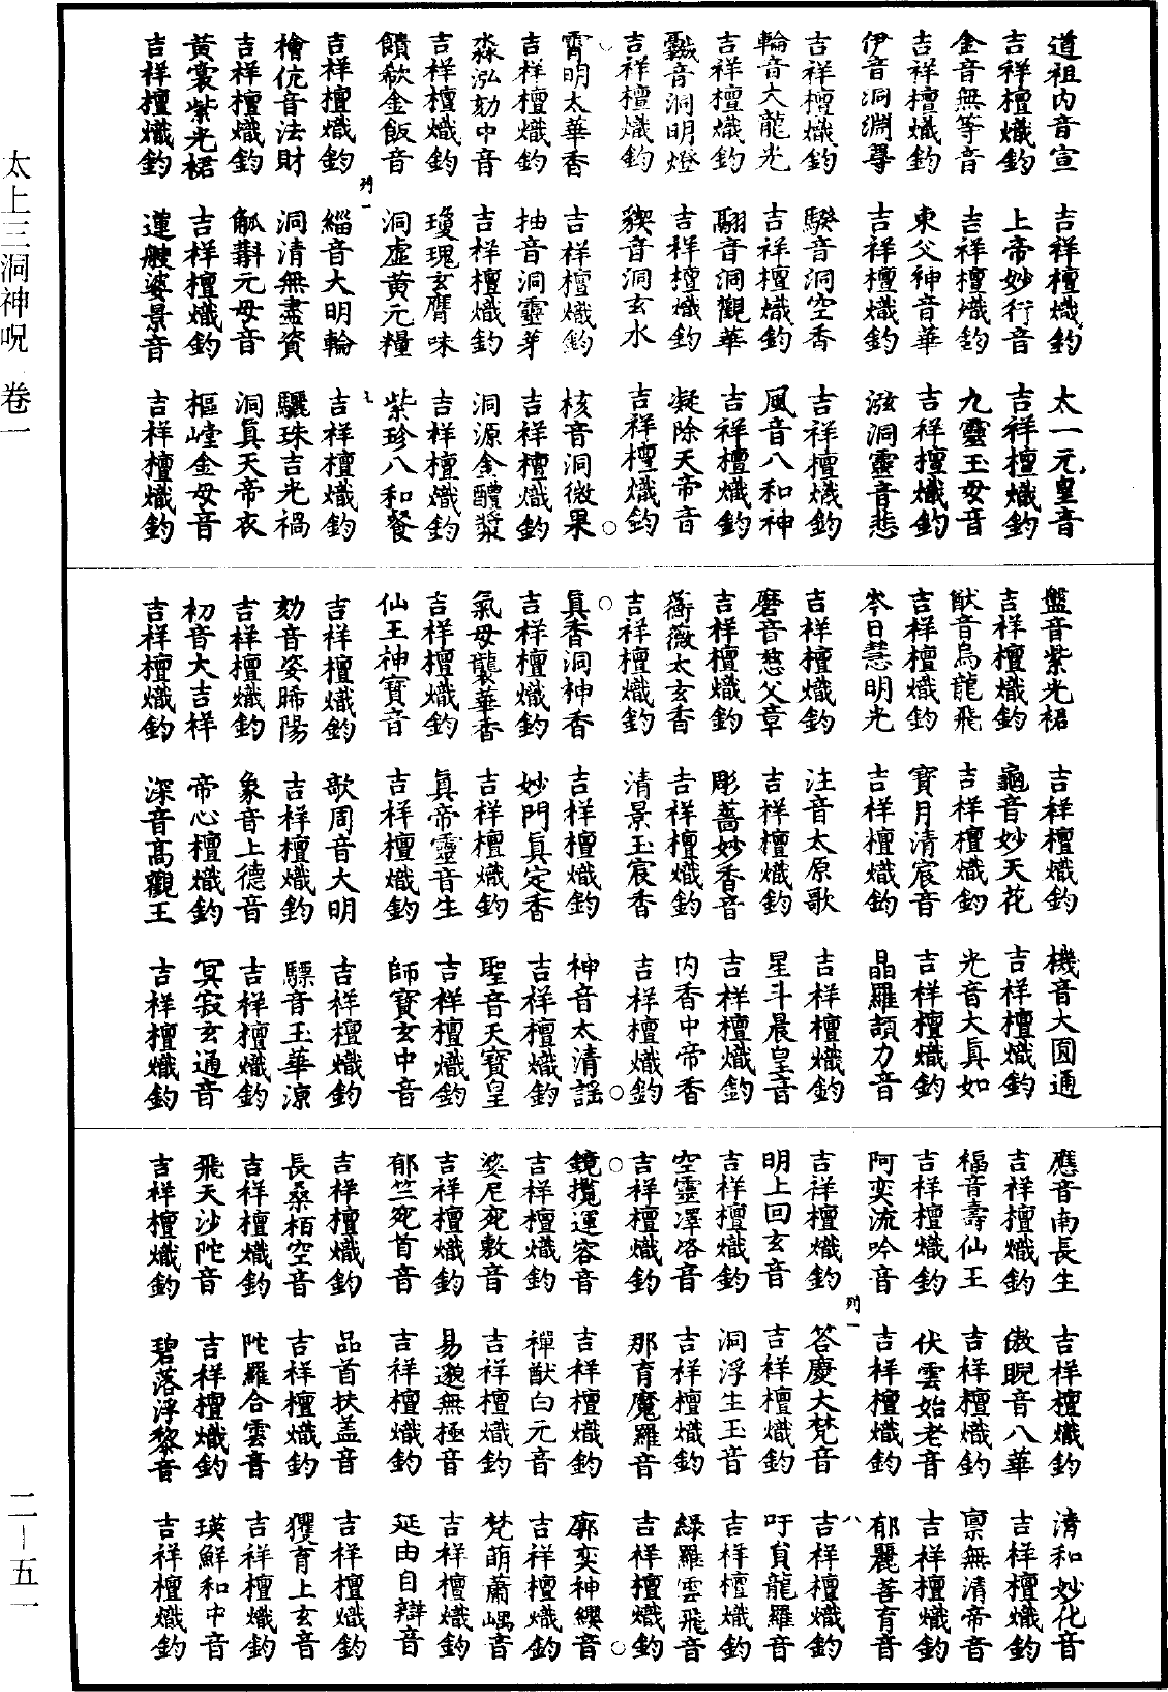 道祖内音宣 吉祥檀熾鈞 太一元皇音
吉祥檀熾鈞 上帝妙行音 吉祥檀熾鈞
金音無等音 吉祥檀熾鈞 九靈玉母音
吉祥檀熾鈞 東父神音華 吉祥檀熾鈞
伊音洞淵尊 吉祥檀熾鈞 泓洞靈音悲
吉祥檀熾鈞 騤音洞空香 吉祥檀熾鈞
輪音大龍光 吉祥檀熾鈞 風音八和神
吉祥檀熾鈞 音洞觀華 吉祥檀熾鈞
音洞明燈 吉祥檀熾鈞 凝除天帝音
吉祥檀熾鈞 音洞玄水 吉祥檀熾鈞
霄明太華香 吉祥檀熾鈞 核音洞微果
吉祥檀熾鈞 抽音洞靈芽 吉祥檀熾鈞
淼泓劾中音 吉祥檀熾鈞 洞源金醴漿
吉祥檀熾鈞 瓊瑰玄膺味 吉祥檀熾鈞
饙欷金飯音 洞虛黄元糧 紫珍八和餐
吉祥檀熾鈞 緇音大明輪 吉祥檀熾鈞
檜伉音法財 洞清無盡資 驪珠吉光褐
吉祥檀熾鈞 觚斠元母音 洞真天帝衣
黄裳紫光裙 吉祥檀熾鈞 樞金母音
吉祥檀熾鈞 蓮艘婆景音 吉祥檀熾鈞
盤音紫光裙 吉祥檀熾鈞 機音大圓通
吉祥檀熾鈞 龜音妙天花 吉祥檀熾鈞
猷音烏龍飛 吉祥檀熾鈞 光音大真如
吉祥檀熾鈞 寶月清宸音 吉祥檀熾鈞
岑日慧明光 吉祥檀熾鈞 晶羅頡力音
吉祥檀熾鈞 注音太原歌 吉祥檀熾鈞
磨音慈父章 吉祥檀熾鈞 星斗晨皇音
吉祥檀熾鈞 彫薔妙香音 吉祥檀熾鈞
蘅薇太玄香 吉祥檀熾鈞 内香中帝香
吉祥檀熾鈞 清景玉宸香 吉祥檀熾鈞
真香洞神香 吉祥檀熾鈞 神音太清謡
吉祥檀熾鈞 妙門真定香 吉祥檀熾鈞
氣母襲華香 吉祥檀熾鈞 聖音天寶皇
吉祥檀熾鈞 真帝靈音生 吉祥檀熾鈞
仙王神寶音 吉祥檀熾鈞 師寶玄中音
吉祥檀熾鈞 歌周音大明 吉祥檀熾鈞
劾音姿晞陽 吉祥檀熾鈞 驃音玉華凉
吉祥檀熾鈞 象音上德音 吉祥檀熾鈞
初音大吉祥 帝心檀熾鈞 冥寂玄通音
吉祥檀熾鈞 深音高觀王 吉祥檀熾鈞
應音南長生 吉祥檀熾鈞 清和妙化音
吉祥檀熾鈞 傲睨音八華 吉祥檀熾鈞
福音壽仙王 吉祥檀熾鈞 禀無清帝音
吉祥檀熾鈞 伏雲始老音 吉祥檀熾鈞
阿奕流吟音 吉祥檀熾鈞 郁麗菩育音
吉祥檀熾鈞 答慶大梵音 吉祥檀熾鈞
明上回玄音 吉祥檀熾鈞 吁員龍羅音
吉祥檀熾鈞 洞浮生玉音 吉祥檀熾鈞
空靈澤洛音 吉祥檀熾鈞 緑羅雲飛音
吉祥檀熾鈞 那育魔羅音 吉祥檀熾鈞
鏡攬運容音 吉祥檀熾鈞 廓奕神纓音
吉祥檀熾鈞 禪猷白元音 吉祥檀熾鈞
婆尼宛敷音 吉祥檀熾鈞 梵萌蕭嵎音
吉祥檀熾鈞 易邈無極音 吉祥檀熾鈞
郁竺宛首音 吉祥檀熾鈞 延由自辯音
吉祥檀熾鈞 品首扶蓋音 吉祥檀熾鈞
長桑栢空音 吉祥檀熾鈞 玃育上玄音
吉祥檀熾鈞 陀羅合雲音 吉祥檀熾鈞
飛天沙陀音 吉祥檀熾鈞 瑛鮮和中音
吉祥檀熾鈞 碧落浮黎音 吉祥檀熾鈞
太上三洞神呪 卷一
二—五一